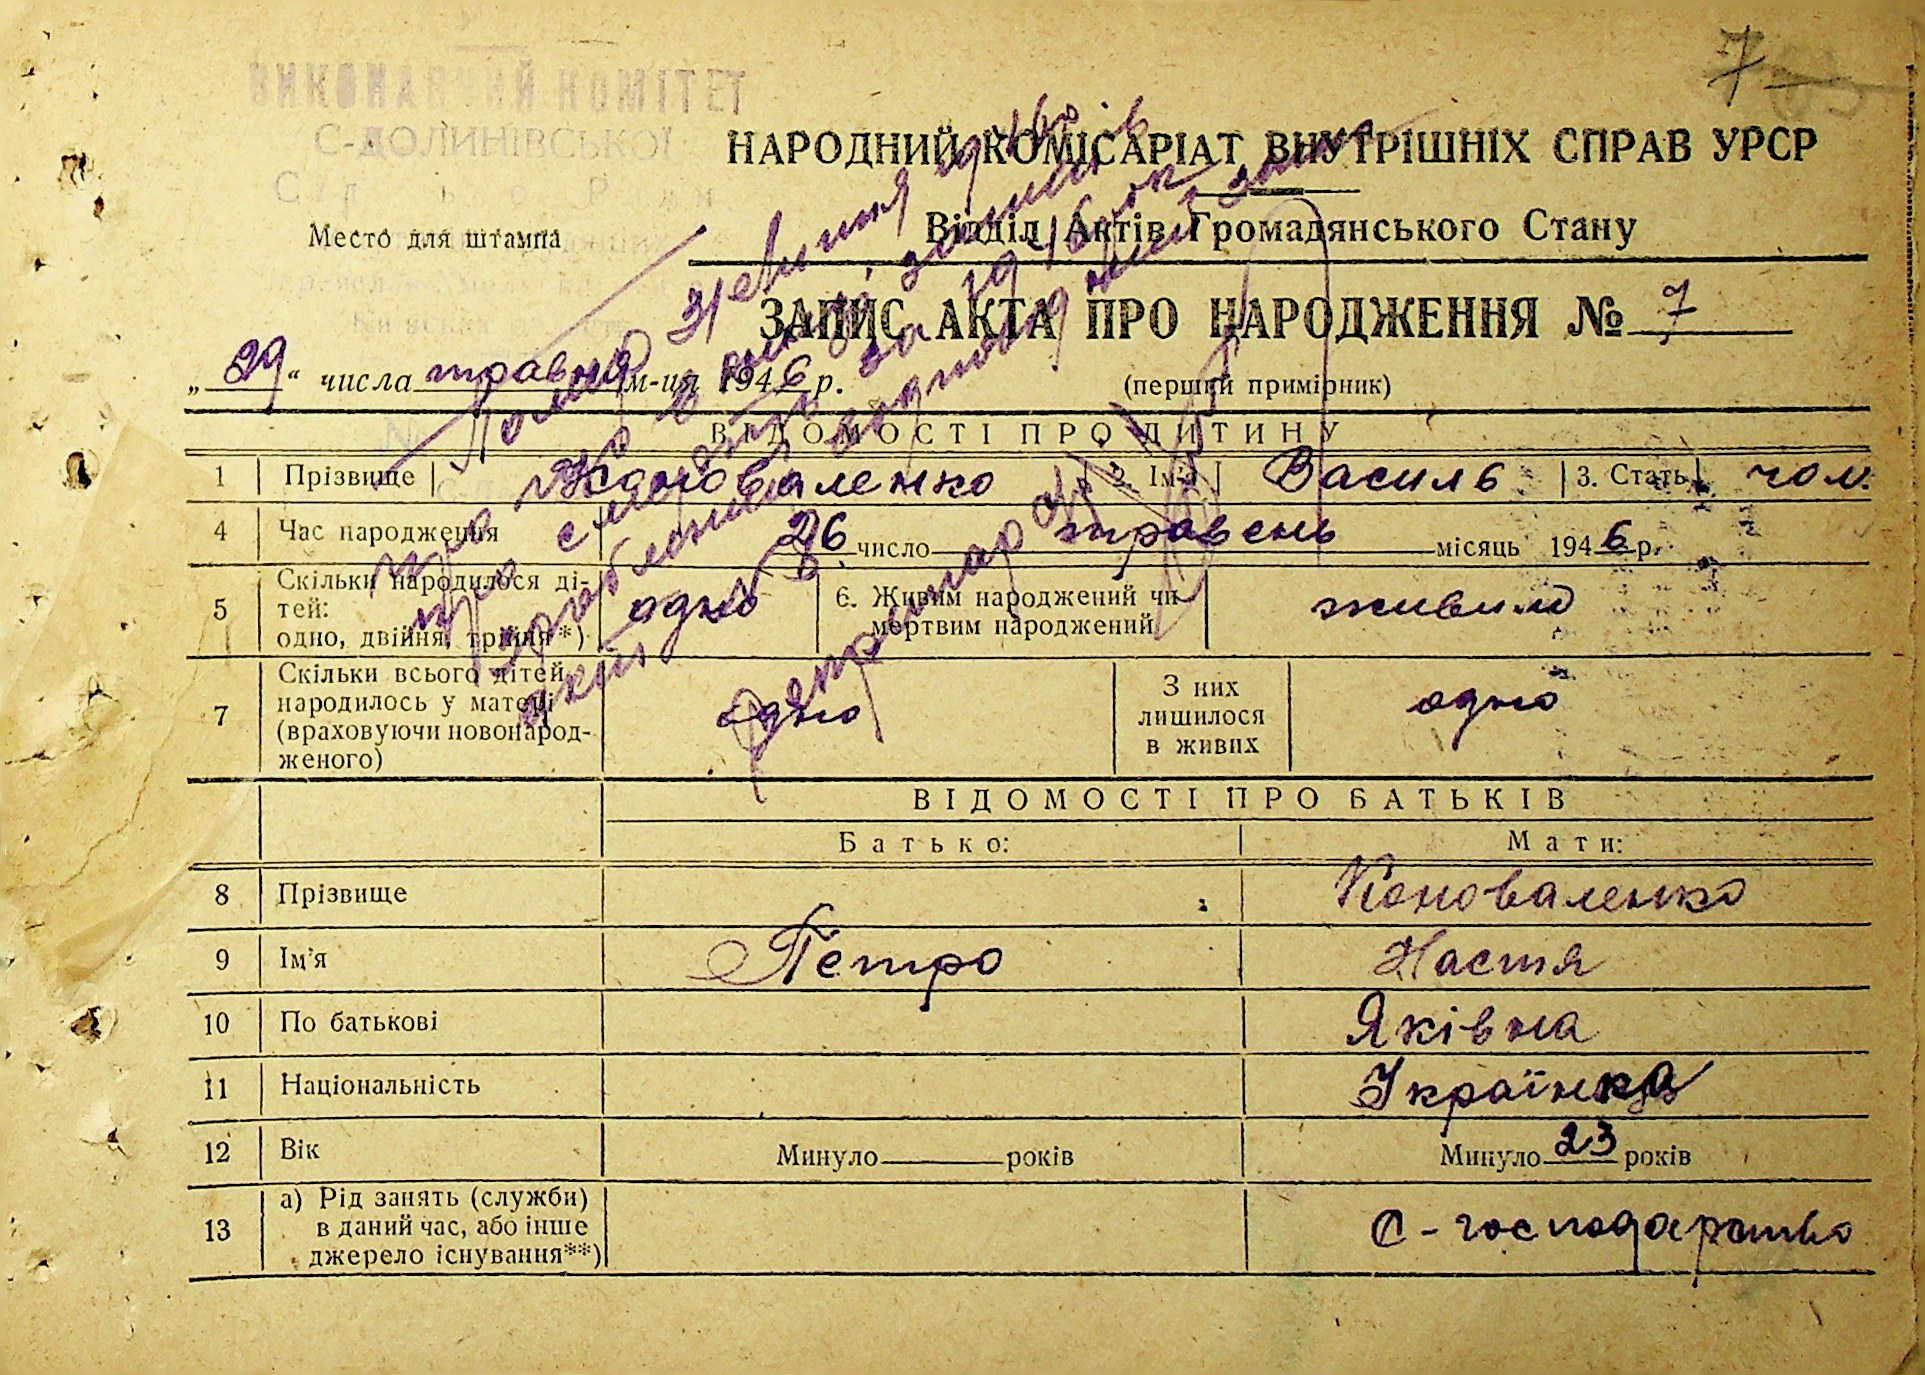 7
ВИКОНАВЧИЙ КОМІТЕТ
С-ДОЛИНІВСЬКОЇ
НАРОДНИЙ КОМІСАРІАТ ВНУТРІШНІХ СПРАВ УРСР
Место для штампа
Відділ Актів Громадянського Стану
ЗАПИС АКТА ПРО НАРОДЖЕННЯ № 7
„29“ числа травня м-ця 1946 р. (перший примірник)
Помер
1946
про що в книзі записів
про смерть за 1946 рік
зроблений відповідний запис
секретар
ВІДОМОСТІ ПРО ДИТИНУ
1 Прізвище Коноваленко 2. Ім'я Василь 3. Стать чол.
4 Час народження 26 число травень місяць 1946 р.
5 Скільки народилося ді-
тей:
одно, двійня, трійня*) одно 6. Живим народжений чи
мертвим народжений живим
7 Скільки всього дітей
народилось у матері
(враховуючи новонарод-
женого) одно З них
лишилося
в живих одно
ВІДОМОСТІ ПРО БАТЬКІВ
Батько: Мати:
8 Прізвище Коноваленко
9 Ім'я Петро Настя
10 По батькові Яківна
11 Національність Українка
12 Вік Минуло років Минуло 23 років
13 а) Рід занять (служби)
в даний час, або інше
джерело існування**) С-господарство